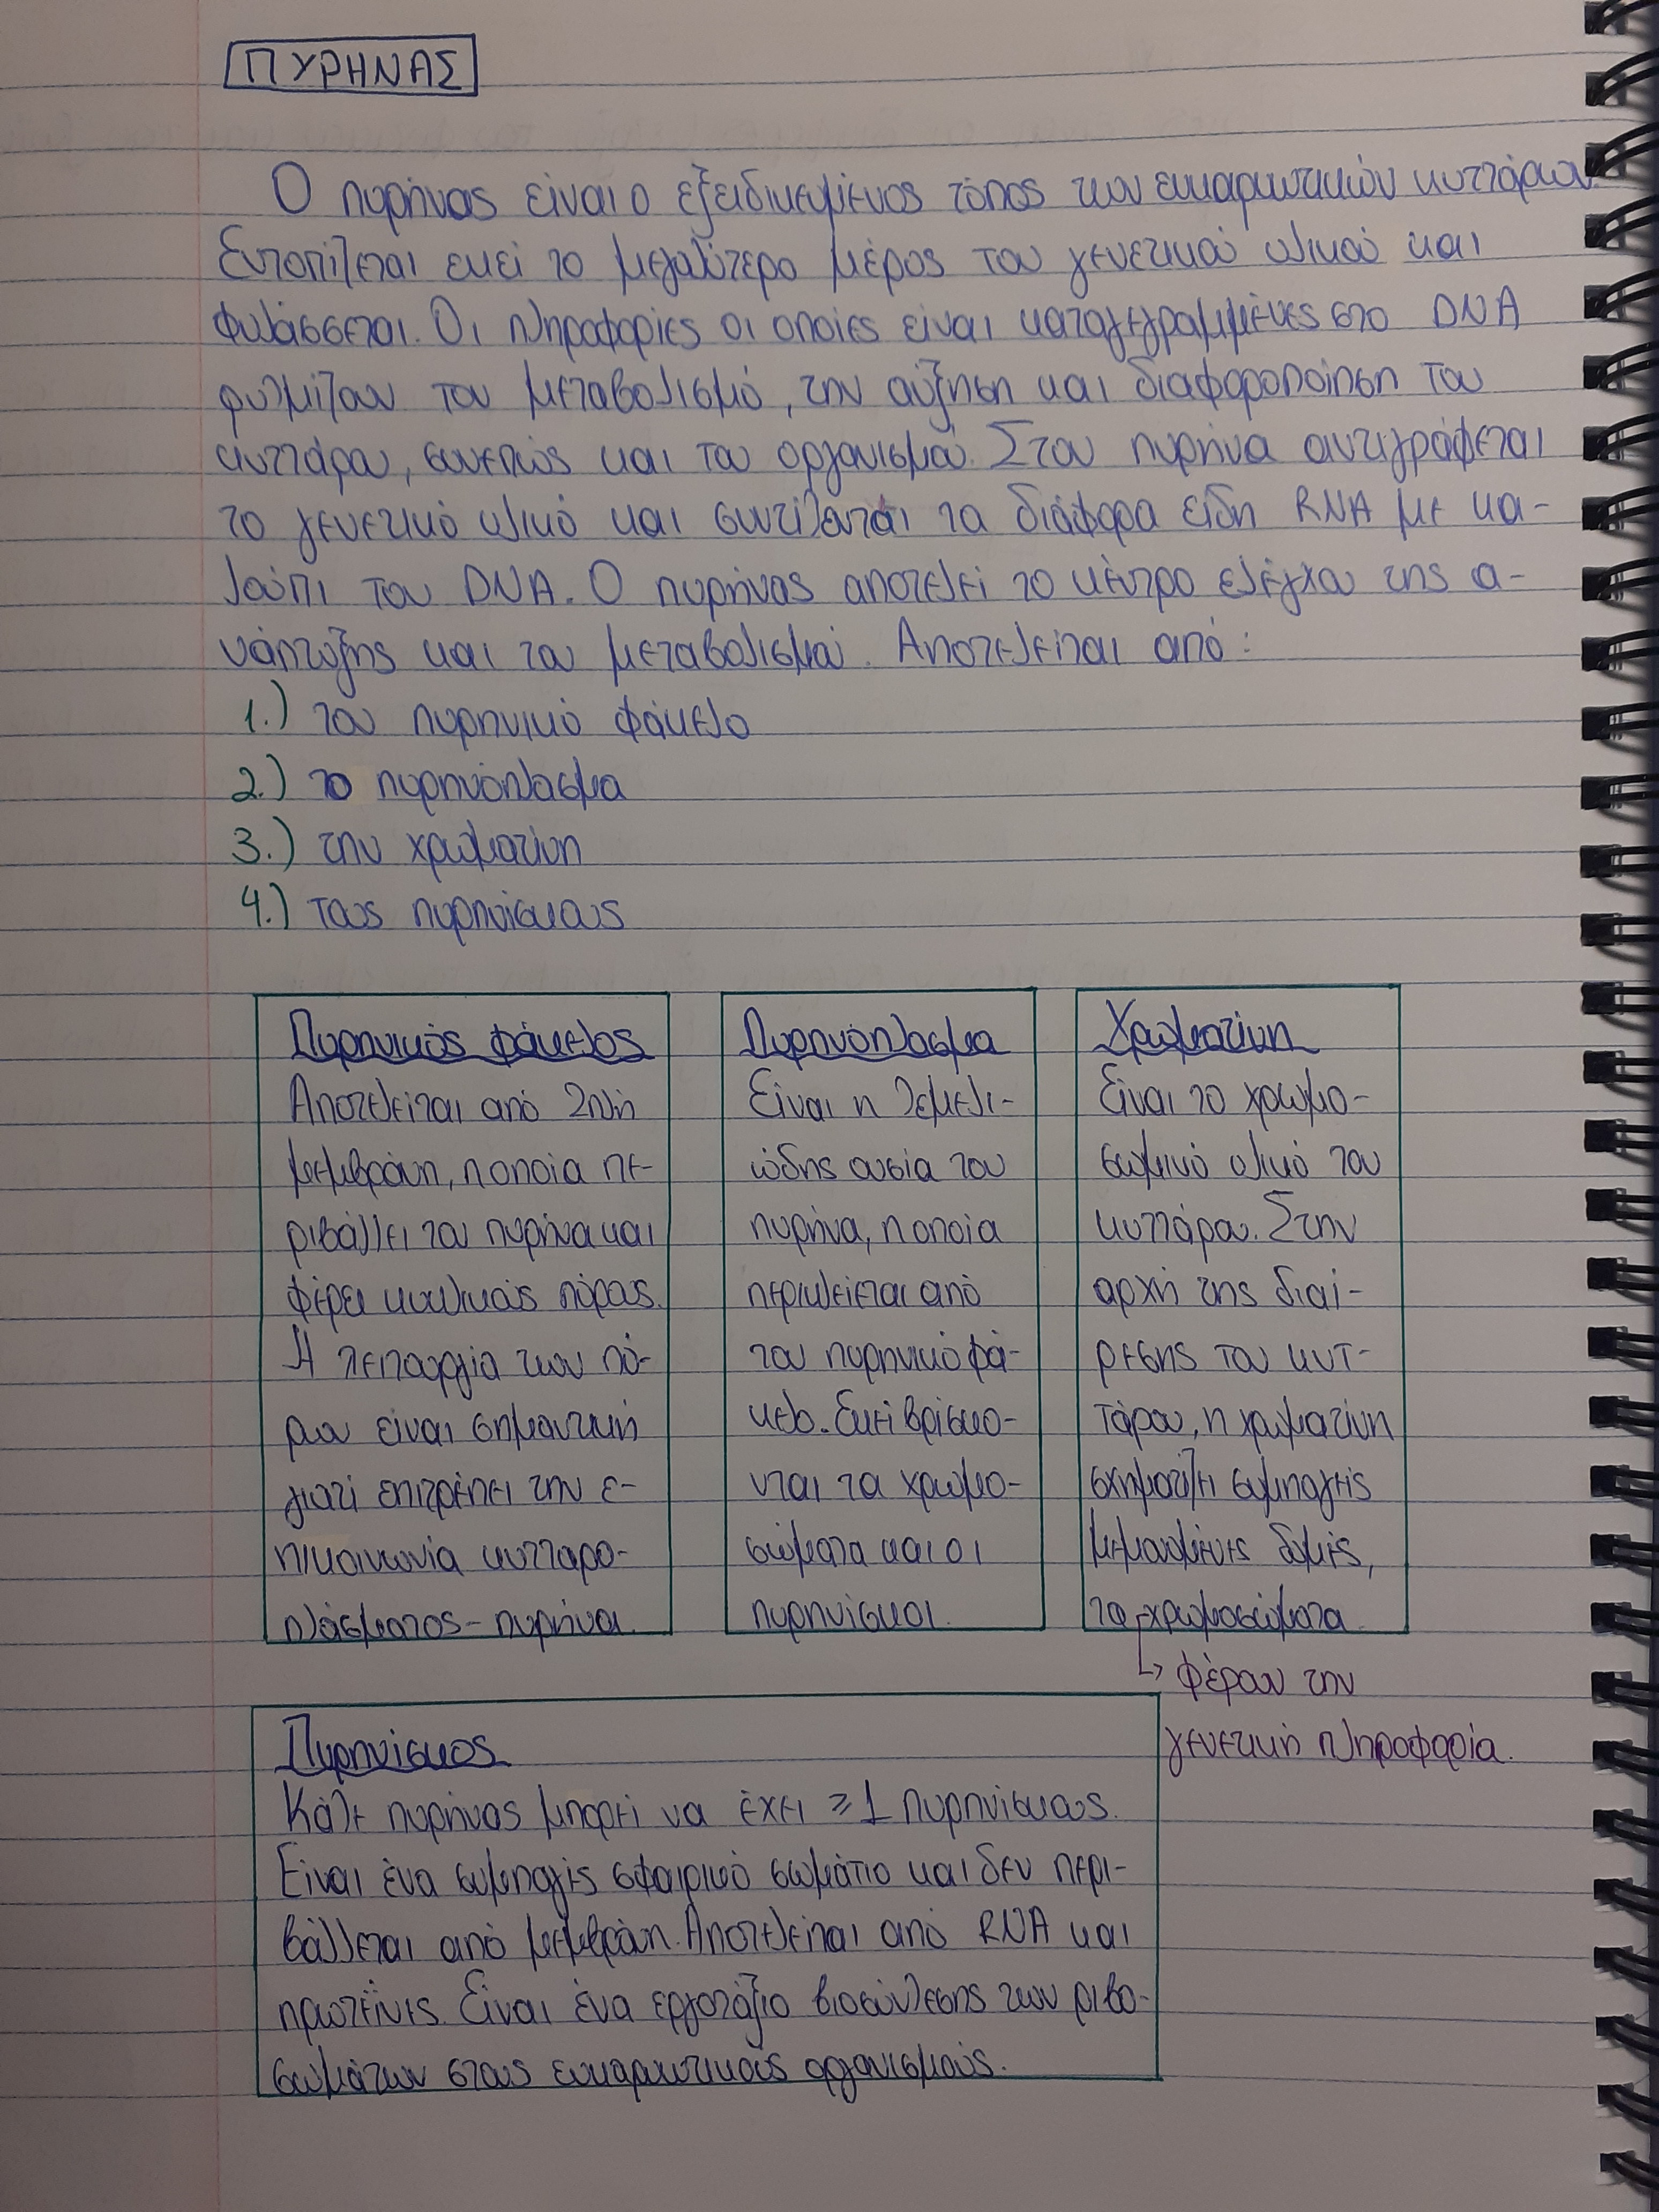 ΠΥΡΗΝΑΣ
Ο πυρήνας είναι ο εξειδικευμένος τόπος των ευκαρυωτικών κυττάρων.
Εντοπίζεται εκεί το μεγαλύτερο μέρος του γενετικού υλικού και
φυλάσσεται. Οι πληροφορίες οι οποίες είναι καταγεγραμμένες στο DNA
ρυθμίζουν τον μεταβολισμό, την αύξηση και διαφοροποίηση του
κυττάρου, συνεπώς και του οργανισμού. Στον πυρήνα αντιγράφεται
το γενετικό υλικό και συντίθονται τα διάφορα είδη RNA με κα-
λούπι του DNA. Ο πυρήνας αποτελεί το κέντρο ελέγχου της α-
νάπτυξης και του μεταβολισμού. Αποτελείται από:
1.) τον πυρηνικό φάκελο
2.) το πυρηνόπλασμα
3.) την χρωματίνη
4.) τους πυρηνίσκους
Πυρηνικός φάκελος
Αποτελείται από 2πλή
μεμβράνη, η οποία πε-
ριβάλλει τον πυρήνα και
φέρει κυκλικούς πόρους.
Η λειτουργία των πό-
ρων είναι σημαντική
γιατί επιτρέπει την ε-
πικοινωνία κυτταρο-
πλάσματος - πυρήνα.
Πυρηνόπλασμα
Είναι η θεμελι-
ώδης ουσία του
πυρήνα, η οποία
περικλείεται από
τον πυρηνικό φά-
κελο. Εκεί βρίσκο-
νται τα χρωμο-
σώματα και οι
πυρηνίσκοι.
Χρωματίνη
Είναι το χρωμο-
σωμικό υλικό του
κυττάρου. Στην
αρχή της διαί-
ρεσης του κυτ-
τάρου, η χρωματίνη
σχηματίζει συμπαγείς
μεμονωμένες δομές,
τα χρωμοσώματα.
↳ φέρουν την
γενετική πληροφορία.
Πυρηνίσκος
Κάθε πυρήνας μπορεί να έχει ≥1 πυρηνίσκους.
Είναι ένα συμπαγές σφαιρικό σωμάτιο και δεν περι-
βάλλεται από μεμβράνη. Αποτελείται από RNA και
πρωτεΐνες. Είναι ένα εργοτάξιο βιοσύνθεσης των ριβο-
σωμάτων στους ευκαρυωτικούς οργανισμούς.